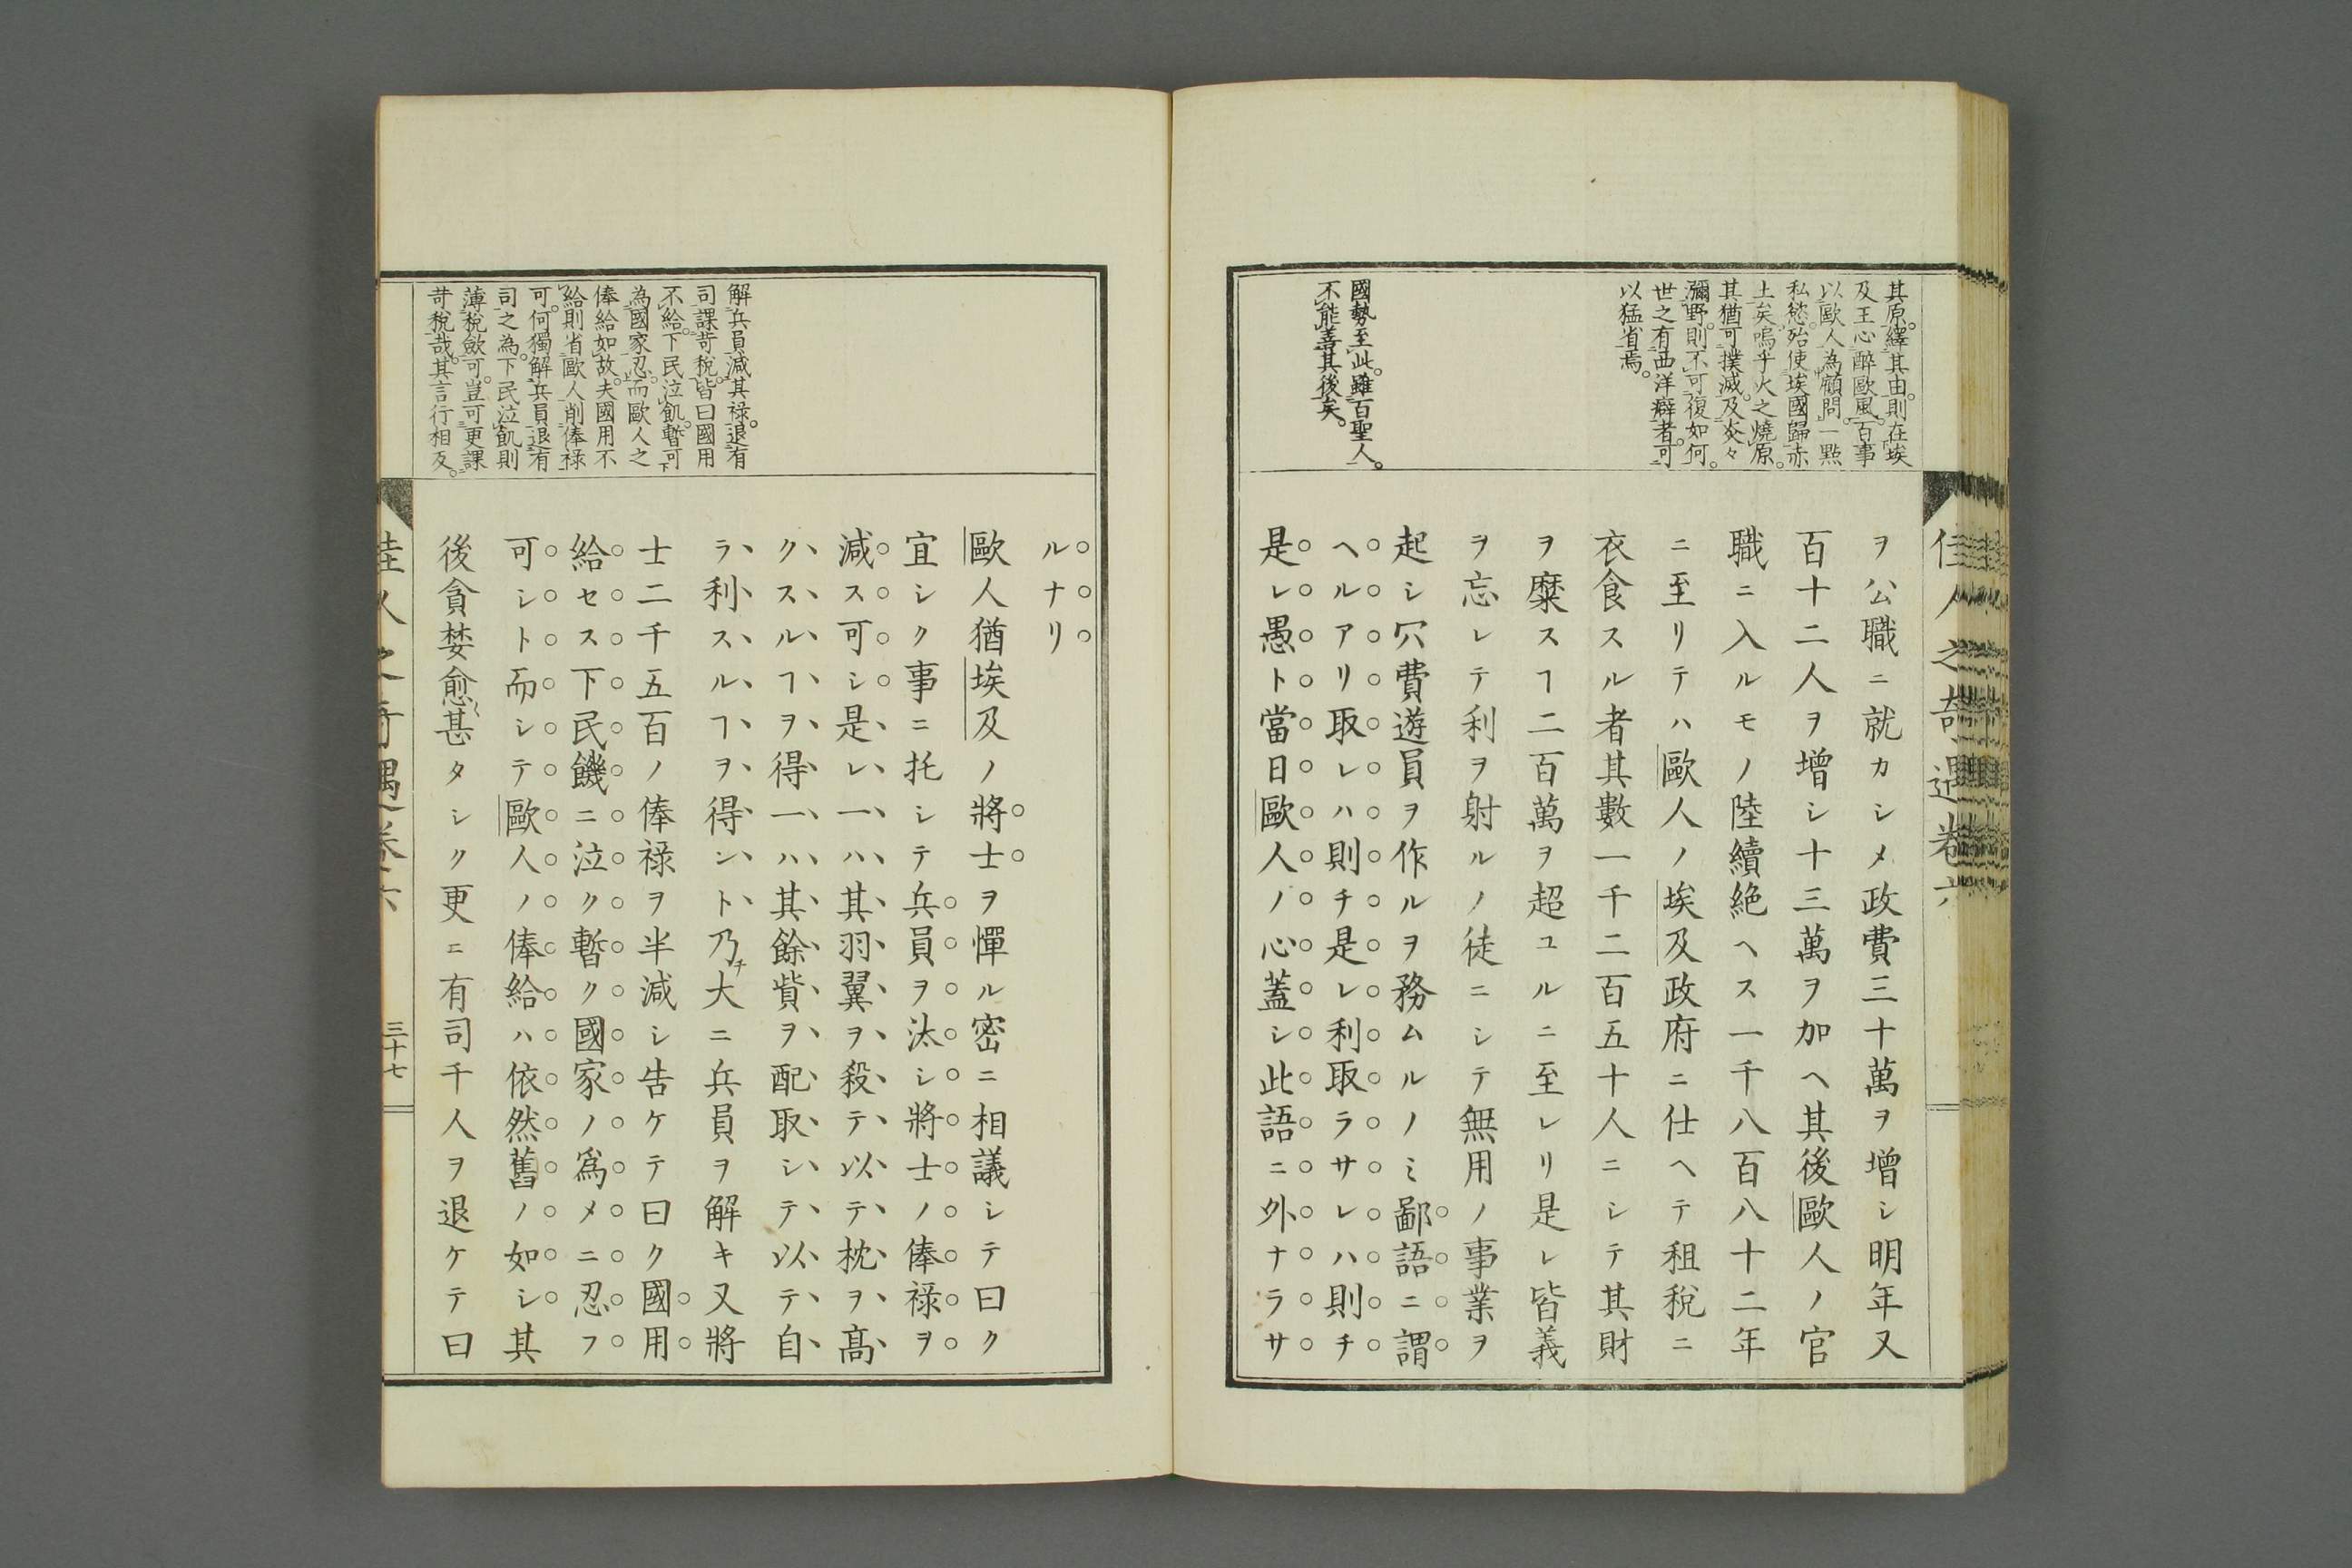 其原。繹其由。則在埃
及王心醉歐風。百事
以歐人為顧問。一點
私慾。殆使埃國歸赤
土矣。嗚乎火之燒原。
其猶可撲滅。及炎々
彌野。則不可復如何。
世之有西洋癖者。可
以猛省焉。
國勢至此。雖百聖人。
不能善其後矣。
佳人之奇遇卷六
ヲ公職ニ就カシメ政費三十萬ヲ增シ明年又
百十二人ヲ增シ十三萬ヲ加ヘ其後歐人ノ官
職ニ入ルモノ陸續絕ヘス一千八百八十二年
ニ至リテハ歐人ノ埃及政府ニ仕ヘテ租稅ニ
衣食スル者其數一千二百五十人ニシテ其財
ヲ糜スヿ二百萬ヲ超ユルニ至レリ是レ皆義
ヲ忘レテ利ヲ射ルノ徒ニシテ無用ノ事業ヲ
起シ冗費遊員ヲ作ルヲ務ムルノミ鄙語ニ謂
ヘルアリ取レハ則チ是レ利取ラサレハ則チ
是レ愚ト當日歐人ノ心蓋シ此語ニ外ナラサ
解兵員減其祿。退有
司課苛稅。皆曰國用
不給。下民泣飢。暫可
為國家忍。而歐人之
俸給如故。夫國用不
給則省歐人削俸祿
可。何獨解兵員退有
司之為。下民泣飢則
薄稅斂可。豈可更課
苛稅哉。其言行相反。
ルナリ
歐人猶埃及ノ將士ヲ憚ル密ニ相議シテ曰ク
宜シク事ニ托シテ兵員ヲ汰シ將士ノ俸祿ヲ
減ス可シ是レ一ハ其羽翼ヲ殺テ以テ枕ヲ高
クスルヿヲ得一ハ其餘貲ヲ配取シテ以テ自
ラ利スルヿヲ得ント乃チ大ニ兵員ヲ解キ又將
士二千五百ノ俸祿ヲ半減シ告ケテ曰ク國用
給セス下民饑ニ泣ク暫ク國家ノ為メニ忍フ
可シト而シテ歐人ノ俸給ハ依然舊ノ如シ其
後貪婪愈〻甚タシク更ニ有司千人ヲ退ケテ曰
佳人之奇遇卷六
三十七